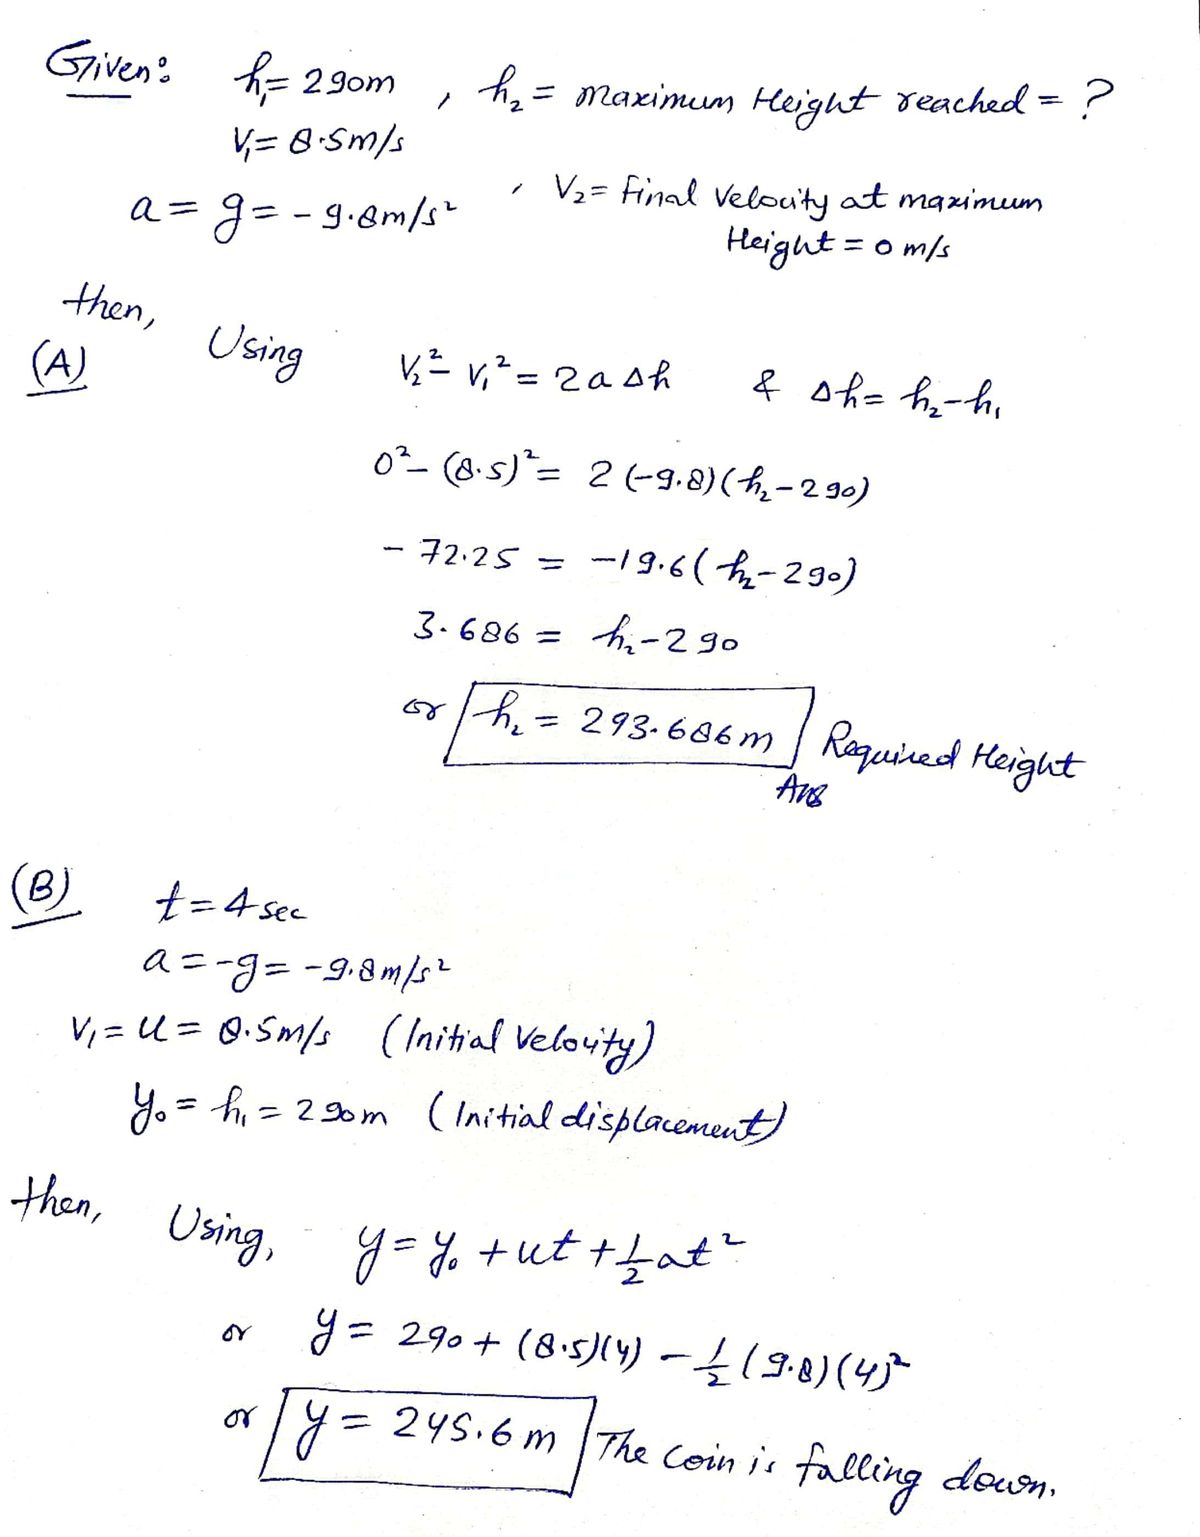 Given: h₁= 290m , h₂= maximum Height reached = ?
V₁= 8.5m/s
a= g= -9.8m/s² , V₂= Final Velocity at maximum
Height = 0 m/s
then,
(A) Using V₂²- V₁²= 2a Δh & Δh= h₂-h₁
0²- (8.5)²= 2 (-9.8)(h₂-290)
- 72.25 = -19.6(h₂-290)
3.686 = h₂-290
or h₂ = 293.686m Required Height
Ans
(B) t=4 sec
a=-g= -9.8m/s²
V₁= u= 8.5m/s (Initial Velocity)
y₀= h₁= 290m (Initial displacement)
then, Using, y= y₀ +ut +1/2 at²
or y= 290+ (8.5)(4) - 1/2 (9.8)(4)²
or y= 245.6 m The Coin is falling down.